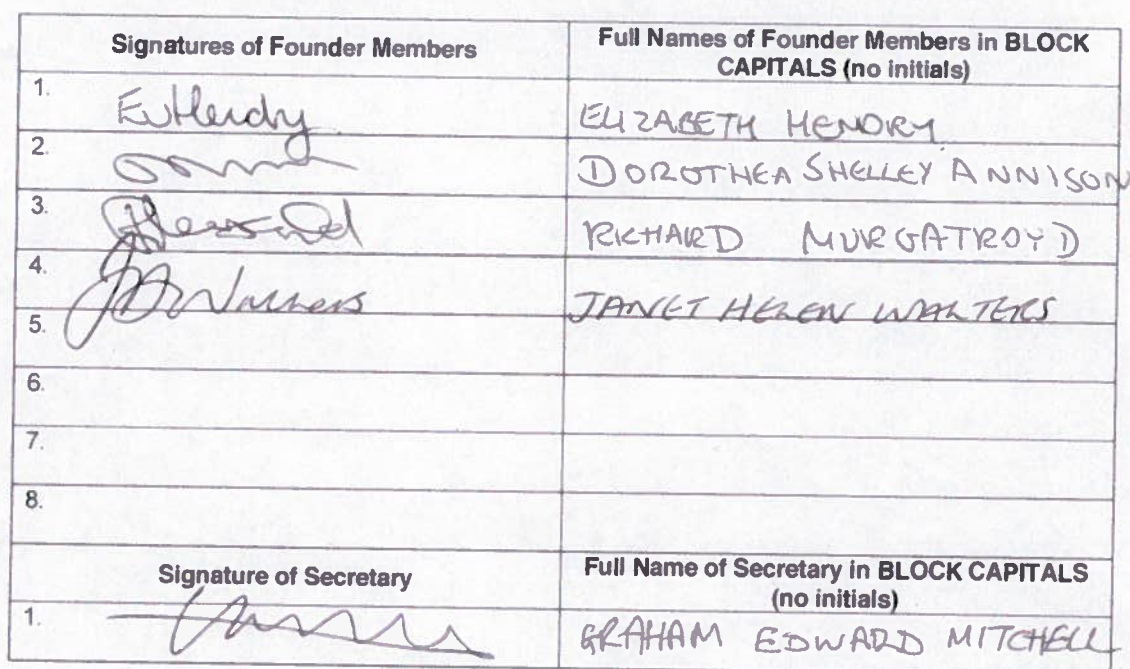 Signatures of Founder Members
Full Names of Founder Members in BLOCK
CAPITALS (no initials)
1.
ELIZABETH HENDRY
2.
DOROTHEA SHELLEY ANNISON
3.
RICHARD MURGATROYD
4.
JANET HELEN WALTERS
5.
6.
7.
8.
Signature of Secretary
Full Name of Secretary in BLOCK CAPITALS
(no initials)
1.
GRAHAM EDWARD MITCHELL